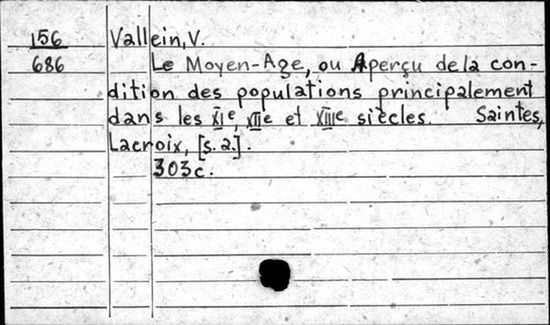 156 Vallein, V.
686 Le Moyen-Age, ou Aperçu de la con-
dition des populations principalement
dans les XIe, XIIe et XIIIe siècles. Saintes,
Lacroix, [s.a.].
303c.